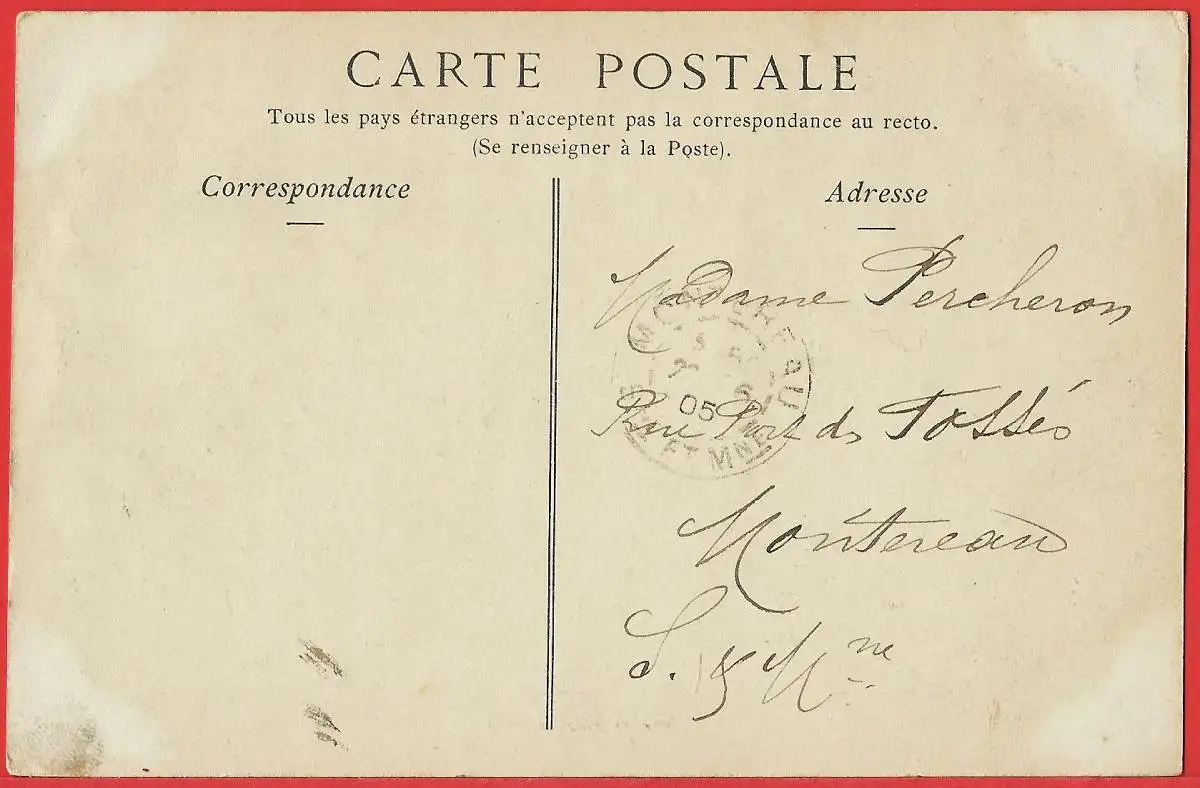 CARTE POSTALE
Tous les pays étrangers n'acceptent pas la correspondance au recto.
(Se renseigner à la Poste).
Correspondance
Adresse
Madame Percheron
Rue Port des Fossés
Montereau
S. & Mne
MONTEREAU
05
ET MNE